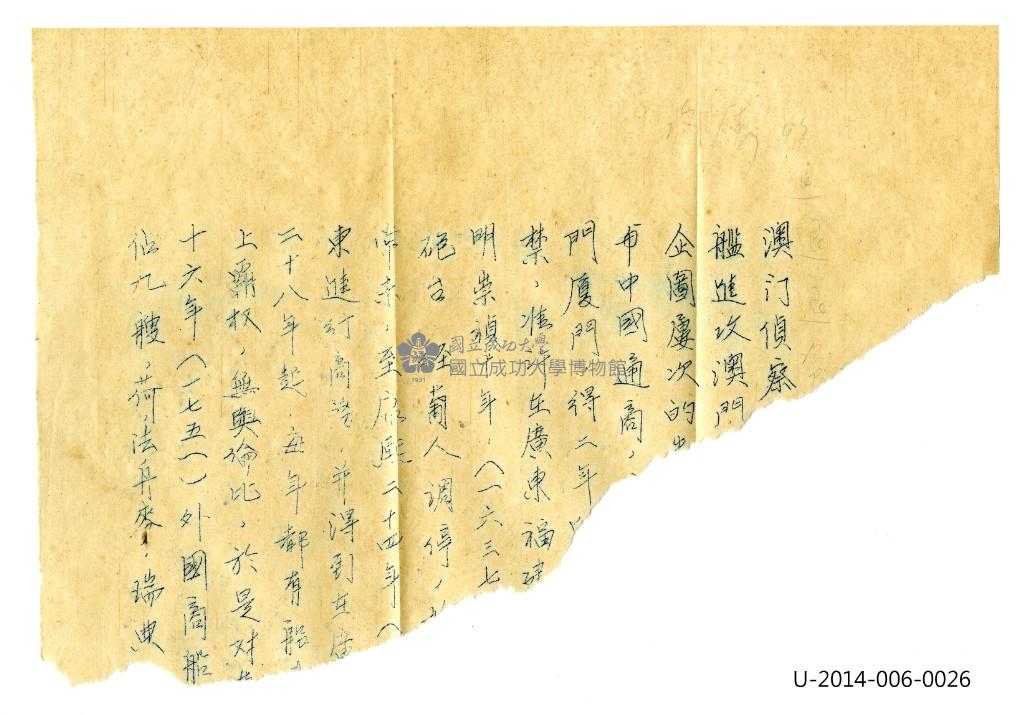 澳门偵察
艦進攻澳門
企圖屡次的
中國通商，
門廈門，得二年
禁，准許在廣東福建
明崇禎十年，（一六三七
砲台，経葡人调停，
至康熙二十四年（
東進行商業，并得到在廣
二十八年起，每年都有船
上霸权，無與倫比，於是对
十六年（一七五一）外國商船
佔九艘，荷，法，丹麥，瑞典
國立成功大學
國立成功大學博物館
1931
U-2014-006-0026